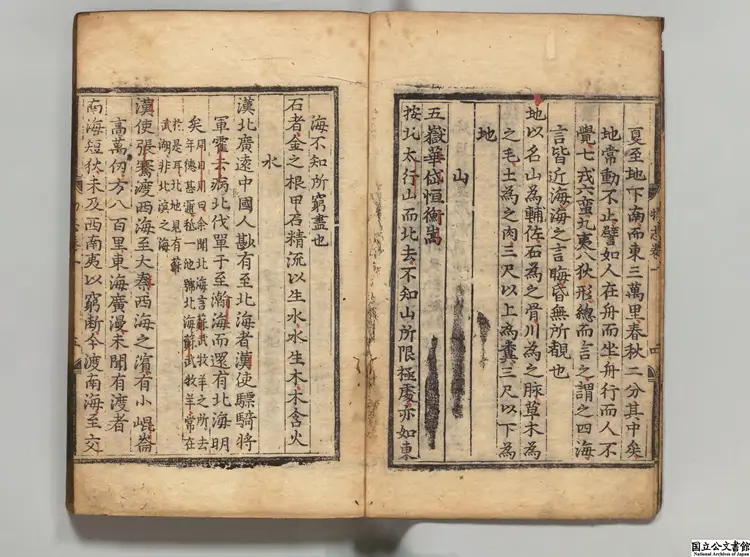 夏至地下南而東三萬里春秋二分其中矣
地常動不止譬如人在舟而坐舟行而人不
覺七戎六蠻九夷八狄形總而言之謂之四海
言皆近海海之言晦昏無所覩也
地
地以名山為輔佐石為之骨川為之脉草木為
之毛土為之肉三尺以上為糞三尺以下為
山
五嶽華岱恒衡嵩
按北太行山而北去不知山所限極處亦如東
海不知所窮盡也
石者金之根甲石精流以生水水生木木含火
水
漢北廣遠中國人尠有至北海者漢使驃騎將
軍霍去病北伐單于至瀚海而還有北海明
矣
周日用曰余聞北海言蘇武牧羊之所去
年德甚邇柢一池號北海蘇武牧羊常在
於是耳北地見有蘇
武湖非北溟之海
漢使張騫渡西海至大秦西海之濱有小崐崙
高萬仞方八百里東海廣漫未聞有渡者
南海短狄未及西南夷以窮斷今渡南海至交
物志卷一
国立公文書館
National Archives of Japan